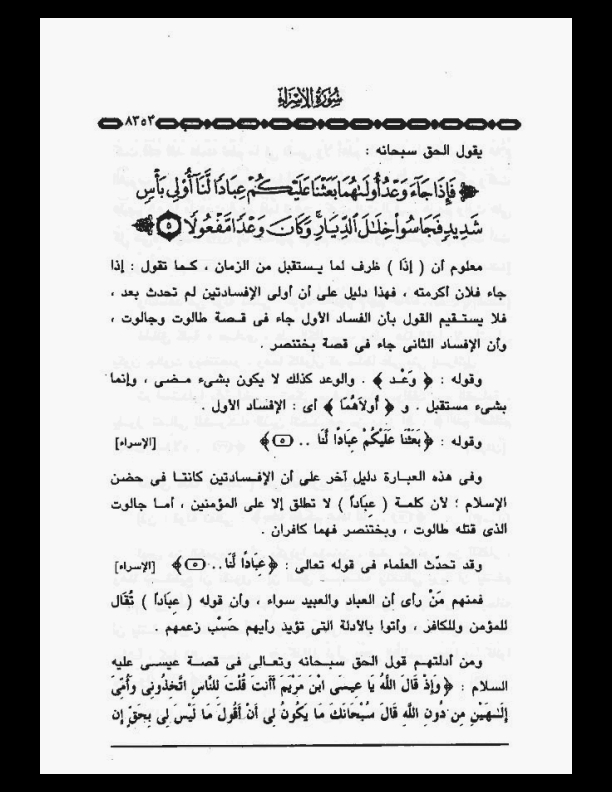 سورة الإسراء
٨٣٥٢
يقول الحق سبحانه :
﴿ فَإِذَا جَآءَ وَعْدُ أُولَىٰهُمَا بَعَثْنَا عَلَيْكُمْ عِبَادًا لَّنَآ أُوْلِى بَأْسٍ
شَدِيدٍ فَجَاسُوا۟ خِلَـٰلَ ٱلدِّيَارِ ۚ وَكَانَ وَعْدًا مَّفْعُولًا ۝٥ ﴾
معلوم أن ( إِذَا ) ظرف لما يستقبل من الزمان ، كما تقول : إذا
جاء فلان أكرمته ، فهذا دليل على أن أولى الإفسادتين لم تحدث بعد ،
فلا يستقيم القول بأن الفساد الأول جاء فى قصة طالوت وجالوت ،
وأن الإفساد الثانى جاء فى قصة بختنصر .
وقوله : ﴿ وَعْد ﴾ . والوعد كذلك لا يكون بشىء مضى ، وإنما
بشىء مستقبل . و ﴿ أُولاهُمَا ﴾ أى : الإفساد الأول .
وقوله : ﴿ بَعَثْنَا عَلَيْكُمْ عِبَادًا لَّنَا .. ٥ ﴾ [الإسراء]
وفى هذه العبارة دليل آخر على أن الإفسادتين كانتا فى حضن
الإسلام ؛ لأن كلمة ( عِبَاداً ) لا تطلق إلا على المؤمنين ، أما جالوت
الذى قتله طالوت ، وبختنصر فهما كافران .
وقد تحدّث العلماء فى قوله تعالى : ﴿ عِبَادًا لَّنَا .. ٥ ﴾ [الإسراء]
فمنهم مَنْ رأى أن العباد والعبيد سواء ، وأن قوله ( عِبَاداً ) تُقَال
للمؤمن وللكافر ، وأتوا بالأدلة التى تؤيد رأيهم حَسْب زعمهم .
ومن أدلتهم قول الحق سبحانه وتعالى فى قصة عيسى عليه
السلام : ﴿ وَإِذْ قَالَ اللَّهُ يَا عِيسَى ابْنَ مَرْيَمَ أَأَنتَ قُلْتَ لِلنَّاسِ اتَّخِذُونِى وَأُمِّىَ
إِلَـٰهَيْنِ مِن دُونِ اللَّهِ قَالَ سُبْحَانَكَ مَا يَكُونُ لِى أَنْ أَقُولَ مَا لَيْسَ لِى بِحَقٍّ إِن